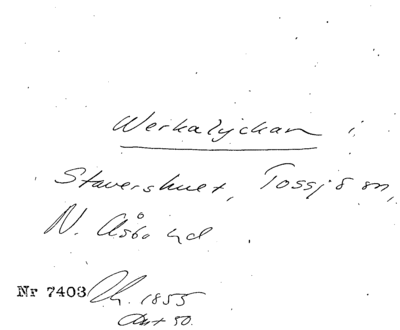 Werkalyckan i
Stavershult, Tossjö sn,
N. Åsbo hd
Nr 7403
Th. 1855
Akt 50.